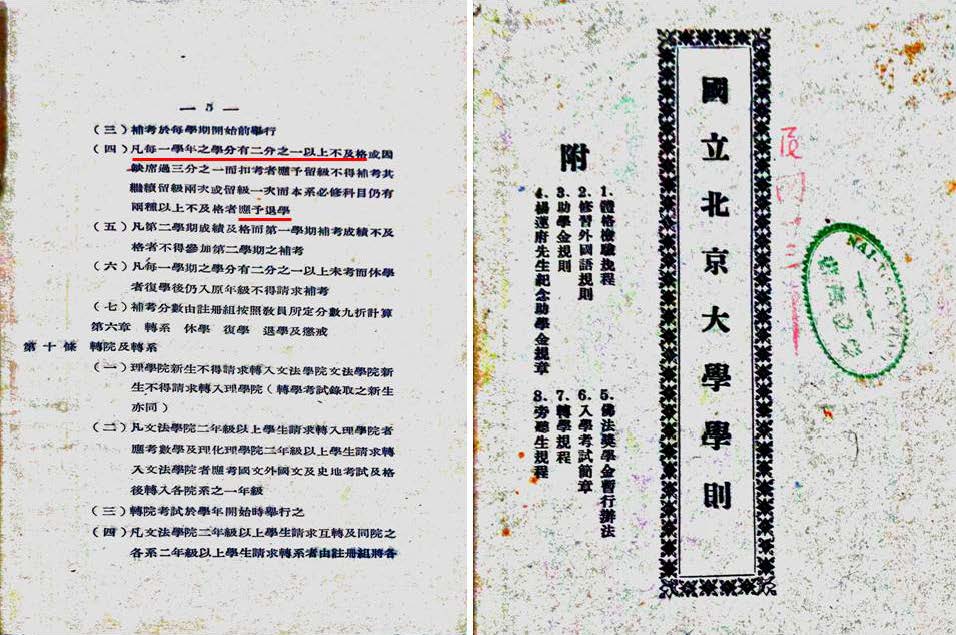 — 5 —
(三)補考於每學期開始前舉行
(四)凡每一學年之學分有二分之一以上不及格或因
缺席過三分之一而扣考者應予留級不得補考其
繼續留級兩次或留級一次而本系必修科目仍有
兩種以上不及格者應予退學
(五)凡第二學期成績及格而第一學期補考成績不及
格者不得參加第二學期之補考
(六)凡每一學期之學分有二分之一以上未考而休學
者復學後仍入原年級不得請求補考
(七)補考分數由註冊組按照教員所定分數九折計算
第六章 轉系 休學 復學 退學及懲戒
第十條 轉院及轉系
(一)理學院新生不得請求轉入文法學院文法學院新
生不得請求轉入理學院(轉學考試錄取之新生
亦同)
(二)凡文法學院二年級以上學生請求轉入理學院者
應考數學及理化理學院二年級以上學生請求轉
入文法學院者應考國文外國文及史地考試及格
後轉入各院系之一年級
(三)轉院考試於學年開始時舉行之
(四)凡文法學院二年級以上學生請求互轉及同院之
各系二年級以上學生請求轉系者由註冊組將各
國立北京大學學則
附
1.體格檢驗規程
2.修習外國語規則
3.助學金規則
4.楊蓮府先生紀念助學金規章
5.佛法獎學金暫行辦法
6.入學考試簡章
7.轉學規程
8.旁聽生規程